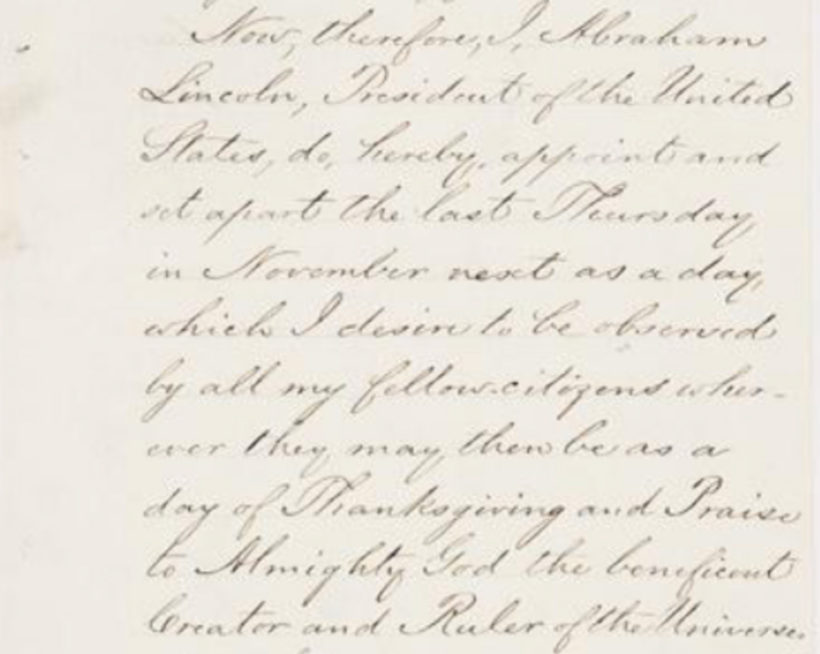 Now, therefore, I, Abraham
Lincoln, President of the United
States, do, hereby, appoint and
set apart the last Thursday
in November next as a day,
which I desire to be observed
by all my fellow-citizens wher-
ever they may then be as a
day of Thanksgiving and Praise
to Almighty God the beneficent
Creator and Ruler of the Universe.